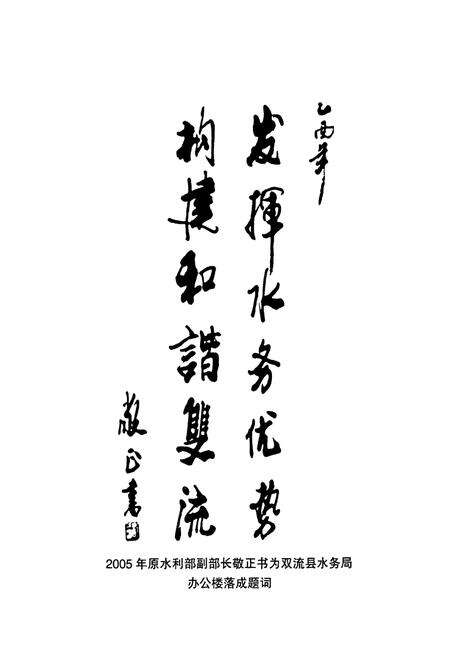 乙酉年
发挥水务优势
构揵和谐雙流
敬正書
2005 年原水利部副部长敬正书为双流县水务局
办公楼落成题词